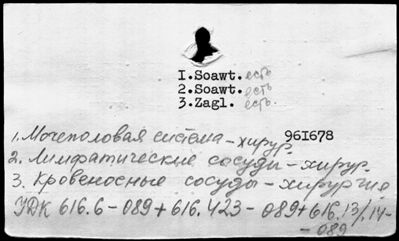 1.Soawt. есть
2.Soawt. есть
3.Zagl. есть
961678
1. Мочеполовая система - хирур.
2. Лимфатические сосуды - хирур.
3. Кровеносные сосуды - хирургия
УДК 616.6-089+616.423-089+616.13/.14-
089